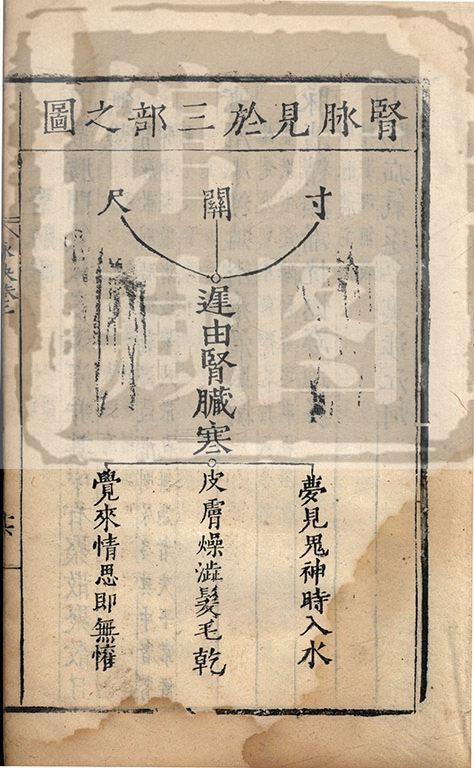 腎脉見於三部之圖
寸
關
尺
遲由腎臟寒
夢見鬼神時入水
皮膚燥澁髮毛乾
覺來情思即無懽